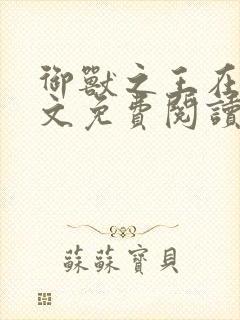 御獸之王在
文免費閱讀
蘇蘇寶貝